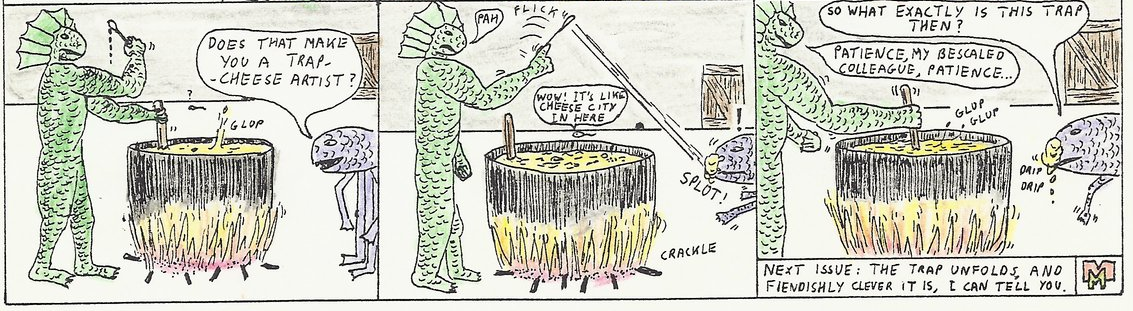 DOES THAT MAKE
YOU A TRAP-
-CHEESE ARTIST?
?
GLOP
PAH
FLICK
WOW! IT'S LIKE
CHEESE CITY
IN HERE
!
SPLOT!
CRACKLE
SO WHAT EXACTLY IS THIS TRAP
THEN?
PATIENCE, MY BESCALED
COLLEAGUE, PATIENCE...
GLOP
GLUP
DRIP
DRIP
NEXT ISSUE: THE TRAP UNFOLDS, AND
FIENDISHLY CLEVER IT IS, I CAN TELL YOU.
MM